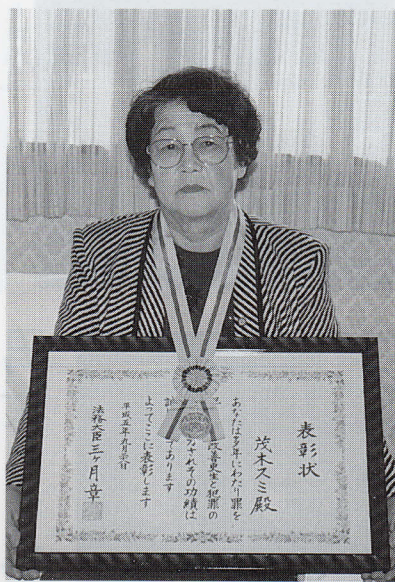 表彰状
茂木スミ殿
あなたは多年にわたり罪を
改善更生と犯罪の
なされその功績は
であります
よってここに表彰します
平成五年九月
法務大臣三ヶ月章